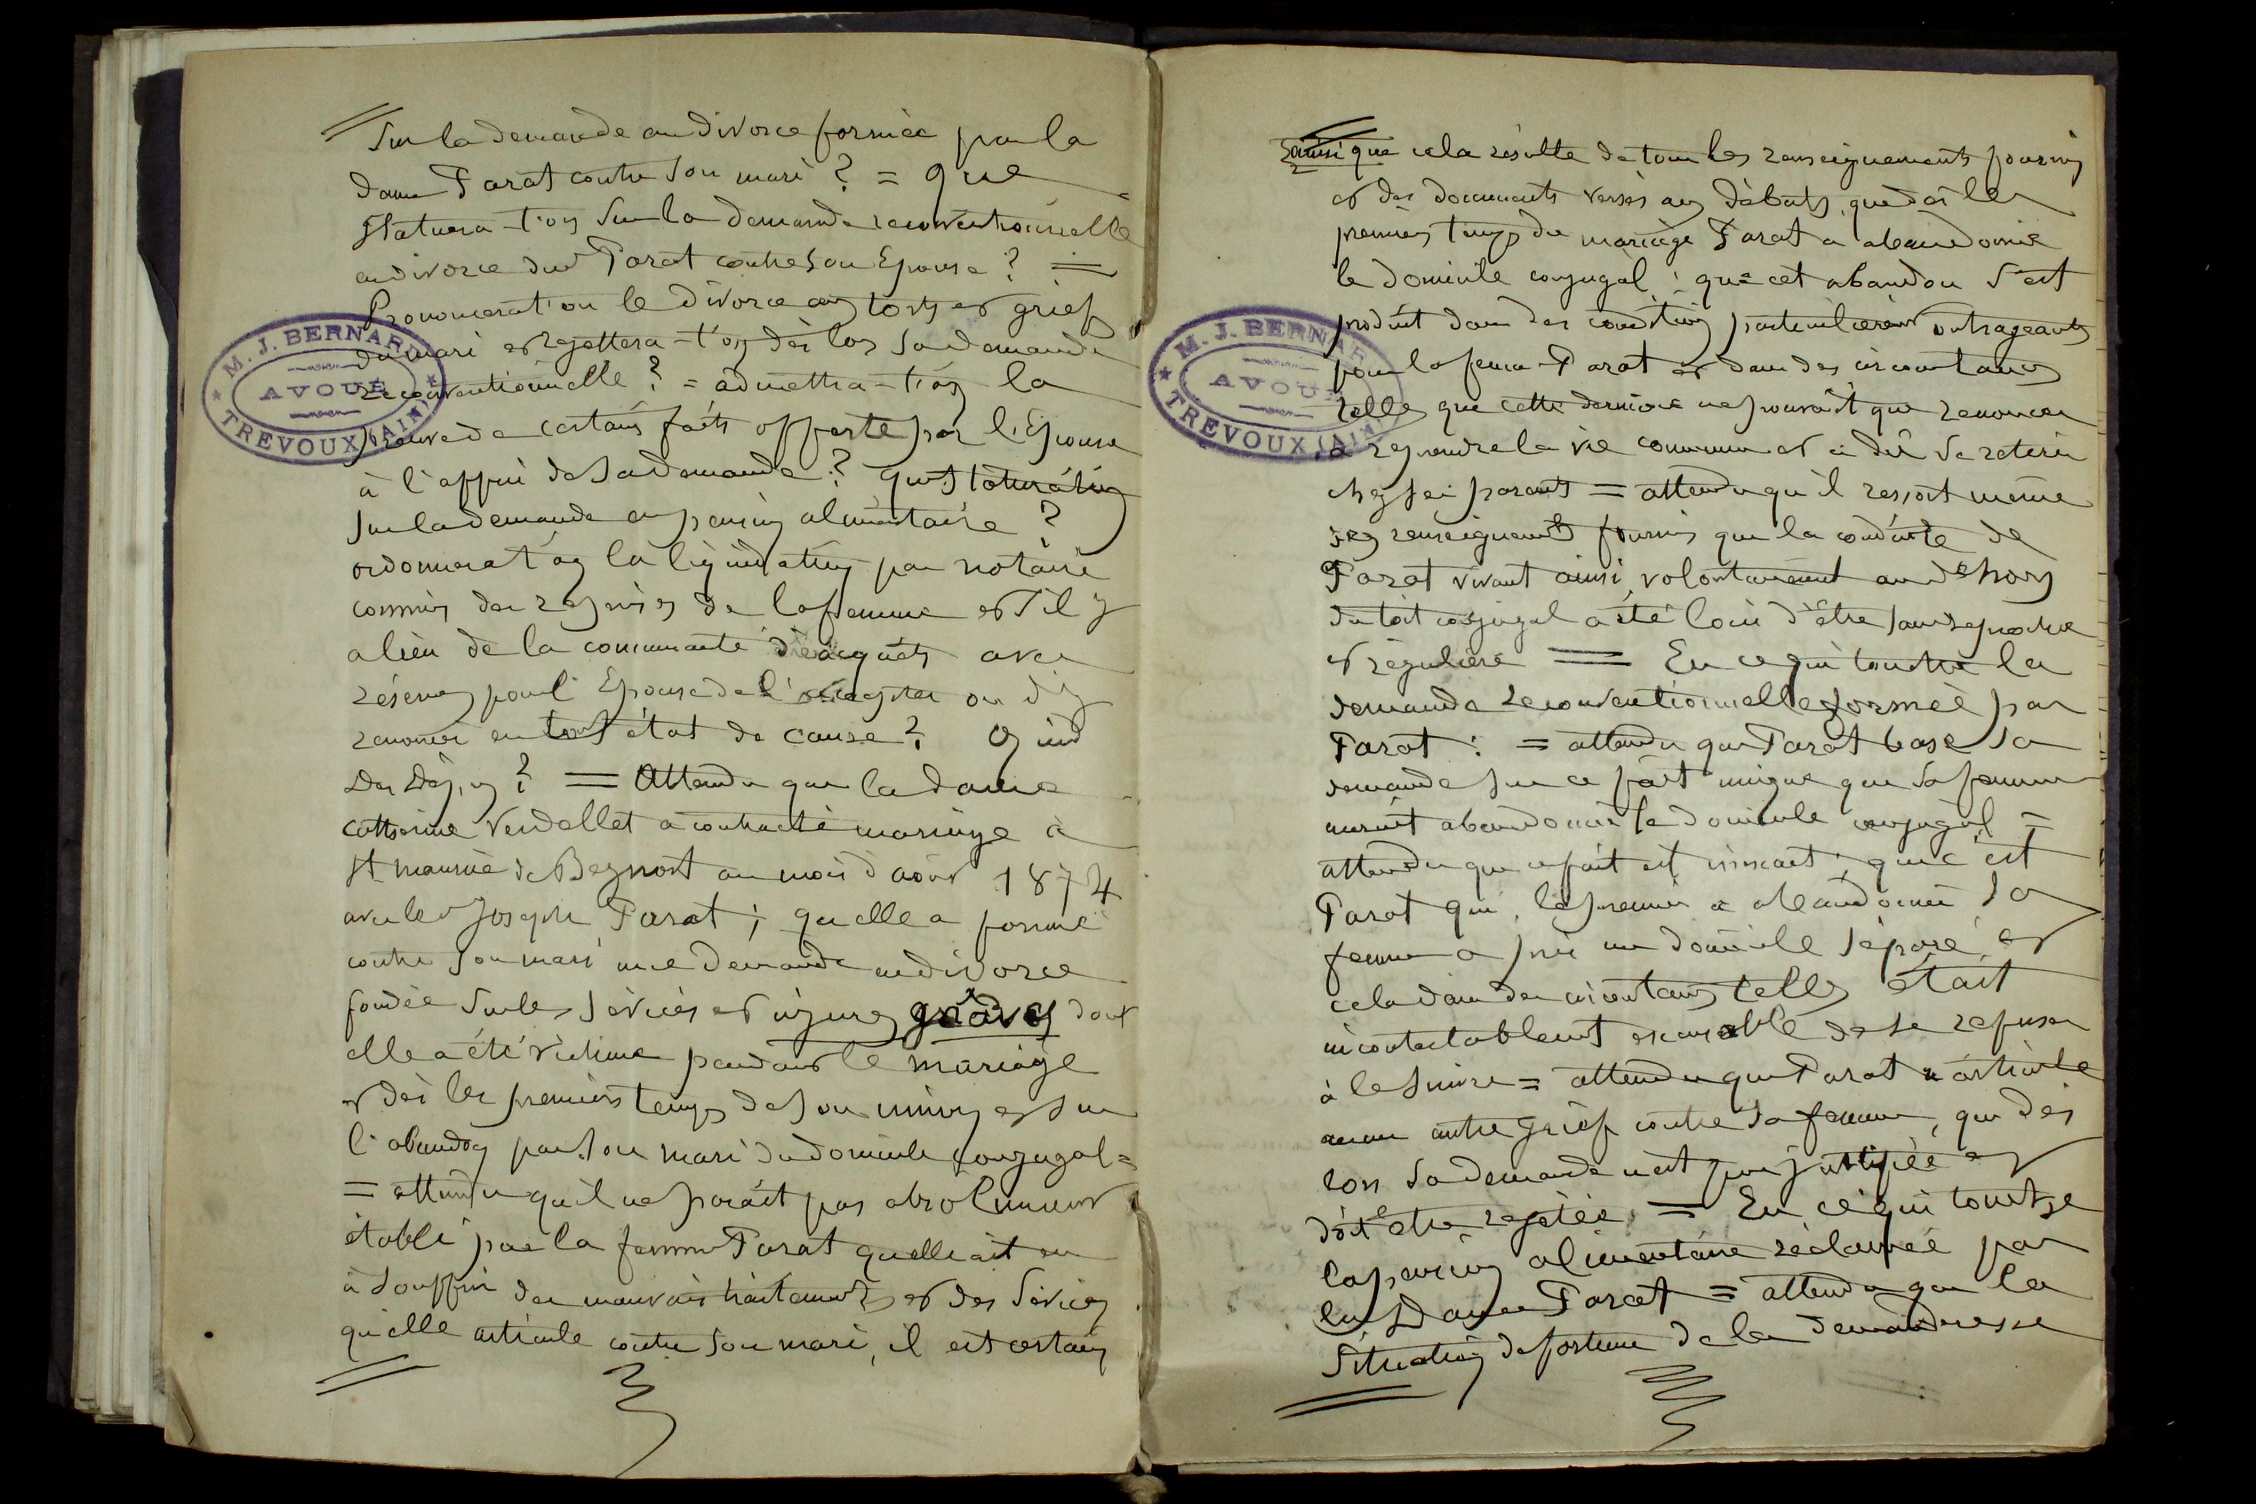 Sur la demande en divorce formée par la
dame Farat contre son mari ? = que
statuera-t'on sur la demande reconventionnelle
en divorce du Sr Farat contre son Epouse ? =
Prononcerat'on le divorce aux torts et griefs
du mari et rejettera-t'on dès lors sa demande
reconventionnelle ? = admettra-t'on la
preuve de certains faits offerte par l'Epouse
à l'appui de sa demande ? que statuerat'on
sur la demande en pension alimentaire ?
ordonnerat'on la liquidation par notaire
commis des reprises de la femme et s'il y
a lieu de la communauté d'acquêts avec
réserves pour l'Epouse de l'accepter ou d'y
renoncer en tout état de cause ? Quid
des dépens ? = Attendu que la dame
Catherine Verdellet a contracté mariage à
St Maurice de Beynost au mois d'août 1874
avec le Sr Joseph Farat ; quelle a formé
contre son mari une demande en divorce
fondée sur les sévices et injures graves dont
elle a été victime pendant le mariage
et dès les premiers temps de son union et sur
l'abandon par son mari du domicile conjugal =
= attendu qu'il ne parait pas absolument
établi par la femme Farat quelle ait eu
à souffrir des mauvais traitements et des sévices
qu'elle articule contre son mari, il est certain
M. J. BERNARD
AVOUÉ
TREVOUX (AIN)
ainsi que cela résulte de tous les renseignements fournis
et des documents versés aux débats, que dès les
premiers temps du mariage Farat a abandonné
le domicile conjugal ; que cet abandon s'est
produit dans des conditions particulièrement outrageantes
pour la femme Farat et dans des circonstances
telles que cette dernière ne pouvait que renoncer
à reprendre la vie commune et a dû se retirer
chez ses parents = attendu qu'il ressort même
des renseignements fournis que la conduite de
Farat vivant ainsi, volontairement en dehors
du toit conjugal a été loin d'être sans reproche
et régulière = En ce qui touche la
demande reconventionnelle formée par
Farat : = attendu que Farat base sa
demande sur ce fait unique que sa femme
aurait abandonné le domicile conjugal =
attendu que ce fait est inexact ; que c'est
Farat qui, le premier a abandonné sa
femme a pris un domicile séparé, et
cela dans des circonstances telles était
incontestablement excusable de se refuser
à le suivre = attendu que Farat n'articule
aucun autre grief contre sa femme, que dès
lors sa demande n'est pas justifiée et
doit être rejetée = En ce qui touche
la pension alimentaire réclamée par
la Dame Farat = attendu que la
situation de fortune de la demanderesse
M. J. BERNARD
AVOUÉ
TREVOUX (AIN)